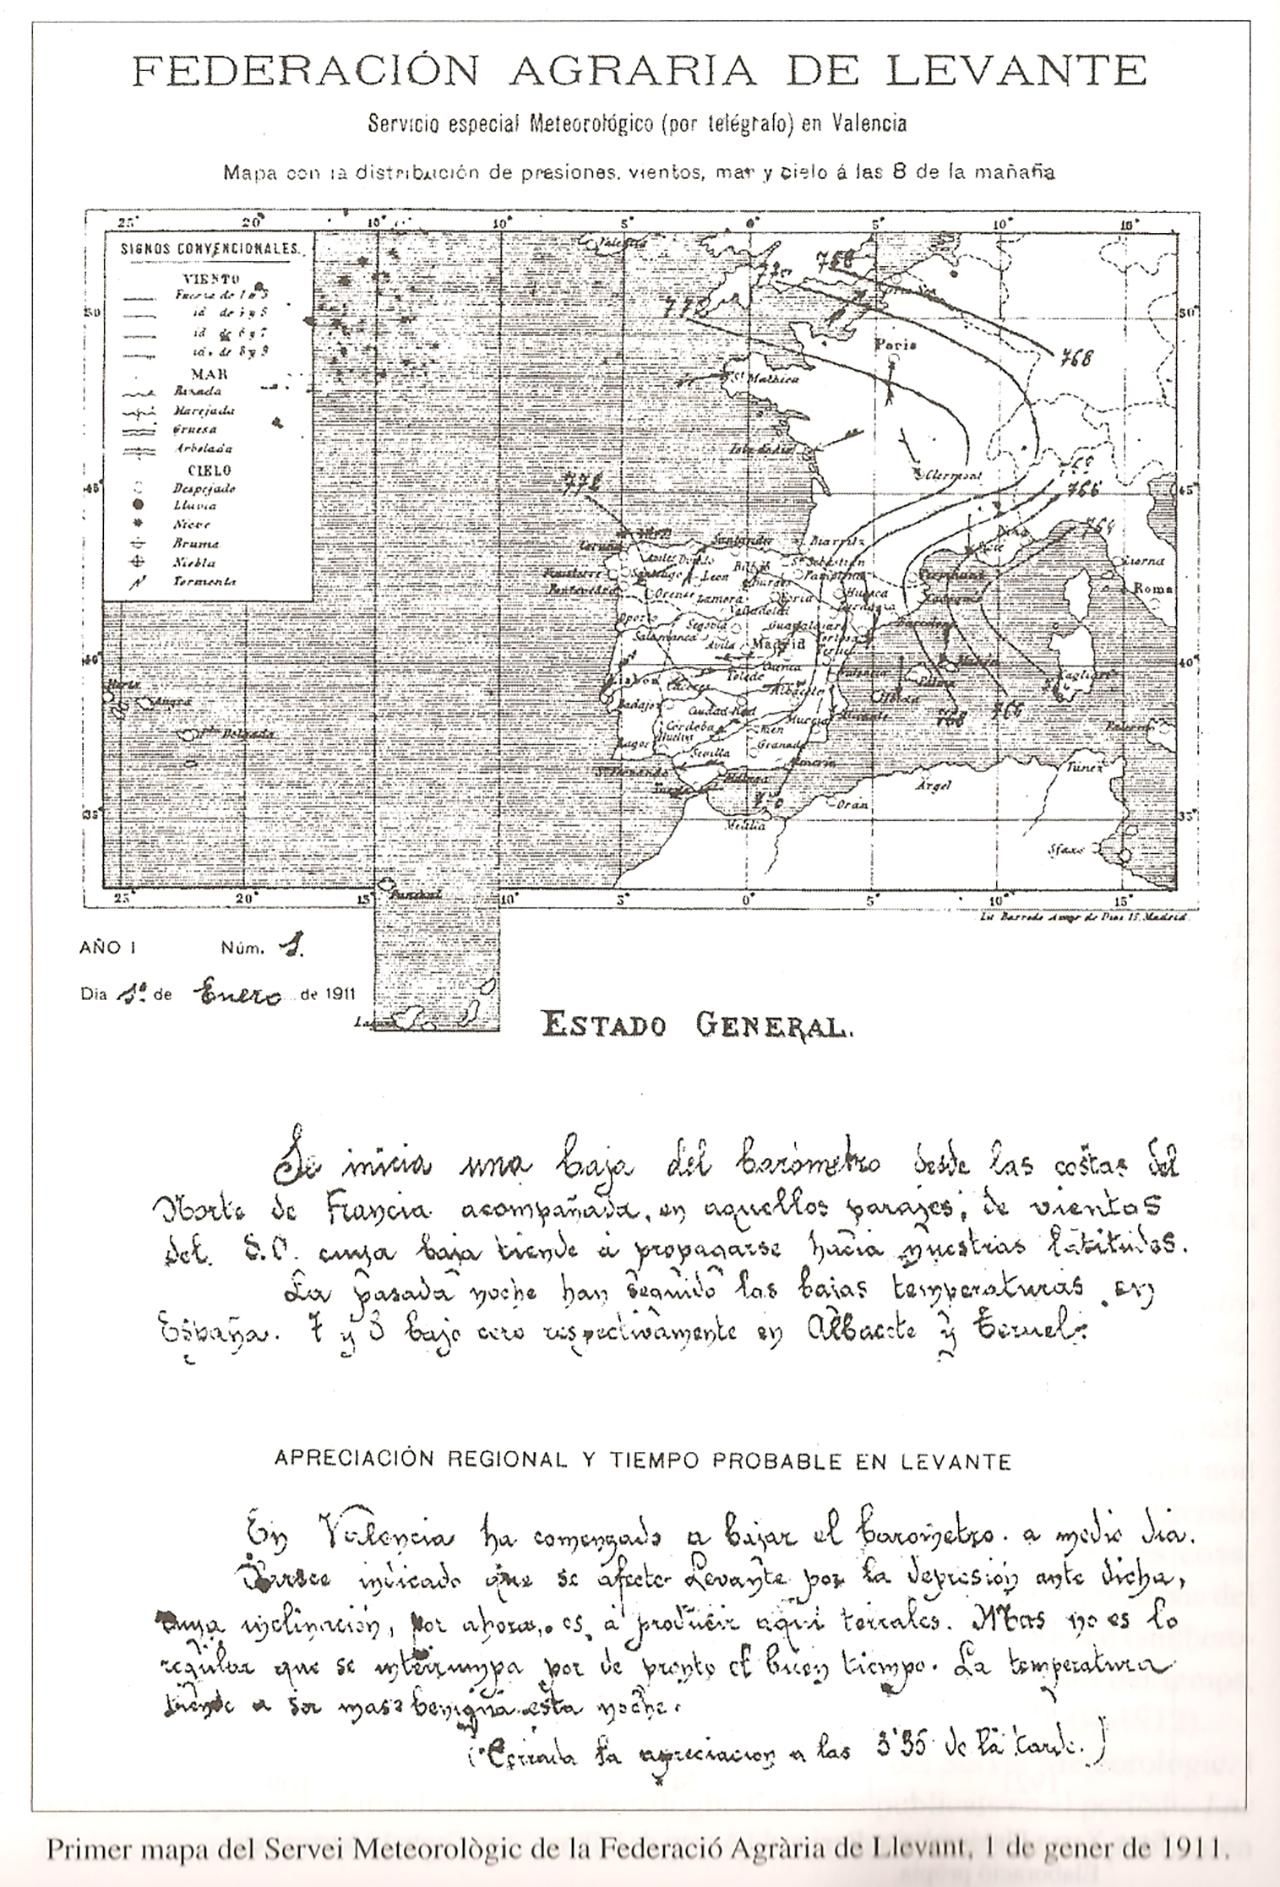 FEDERACIÓN AGRARIA DE LEVANTE
Servicio especial Meteorológico (por telégrafo) en Valencia
Mapa con la distribución de presiones, vientos, mar y cielo á las 8 de la mañaña
25° 20° 15° 10° 5° 0° 5° 10° 15°
SIGNOS CONVENCIONALES.
VIENTO
Fuerza de 1 a 3
id de 3 y 5
id de 6 y 7
id. de 8 y 9
MAR
Rizada
Marejada
Gruesa
Arbolada
CIELO
Despejado
Lluvia
Nieve
Bruma
Niebla
Tormenta
Valentia
768
772
50° 50°
Paris
768
St Mathieu
Clermont
766
45° 45°
772
764
Niza
Coruña
Santander
Biarritz
Liorna
Oviedo
Bilbao
Sn Sebastián
Finisterre
Santiago
Leon
Burgos
Pamplona
Perpiñan
Roma
Pontevedra
Orense
Zamora
Soria
Huesca
Zaragoza
Oporto
Valladolid
Segovia
Guadalajara
Barcelona
Salamanca
Avila
Madrid
Tortosa
Teruel
40° 40°
Cuenca
Lisboa
Toledo
Valencia
Palma
Mahón
Cagliari
Horta
Angra
Caceres
Albacete
Badajoz
Ciudad-Real
Murcia
Alicante
768
766
Pta Delgada
Córdoba
Jaen
Palermo
Lagos
Huelva
Sevilla
Granada
Sn Fernando
Málaga
Almeria
Argel
Túnez
Oran
35° 35°
Melilla
Sfax
Funchal
25° 20° 15° 10° 5° 0° 5° 10° 15°
Lit Barreda Amor de Dios 15. Madrid.
AÑO I Núm. 1.
Dia 1º de Enero de 1911
ESTADO GENERAL.
Se inicia una baja del barómetro desde las costas del
Norte de Francia acompañada, en aquellos parajes, de vientos
del S.O. cuya baja tiende á propagarse hacia nuestras latitudes.
La pasada noche han seguido las bajas temperaturas en
España. 7 y 8 bajo cero respectivamente en Albacete y Teruel.
APRECIACIÓN REGIONAL Y TIEMPO PROBABLE EN LEVANTE
En Valencia ha comenzado a bajar el barómetro a medio dia.
Parece indicado que se afecte Levante por la depresión ante dicha,
cuya inclinación, por ahora, es á producir aquí terrales. Mas no es lo
regular que se interrumpa por de pronto el buen tiempo. La temperatura
tiende a ser mas benigna esta noche.
(Cerrada la apreciacion a las 3'35 de la tarde.)
Primer mapa del Servei Meteorològic de la Federació Agrària de Llevant, 1 de gener de 1911.